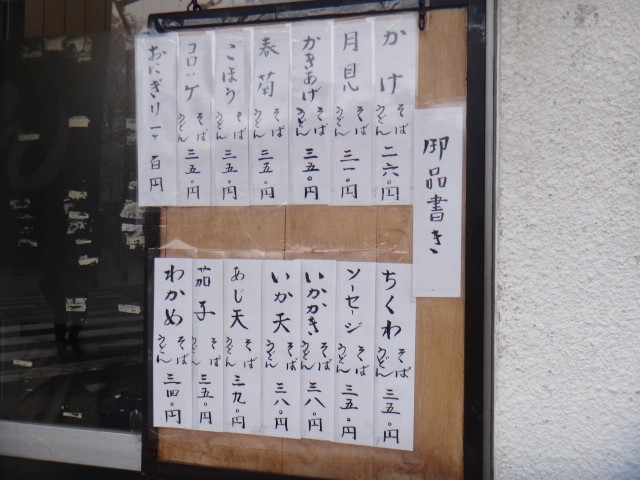 御品書き
かけ そば うどん 二六〇円
月見 そば うどん 三一〇円
かきあげ そば うどん 三五〇円
春菊 そば うどん 三五〇円
ごぼう そば うどん 三五〇円
コロッケ そば うどん 三五〇円
おにぎり一ヶ 百円
ちくわ そば うどん 三五〇円
ソーセージ そば うどん 三五〇円
いかかき そば うどん 三八〇円
いか天 そば うどん 三八〇円
あじ天 そば うどん 三九〇円
茄子 そば うどん 三五〇円
わかめ そば うどん 三四〇円